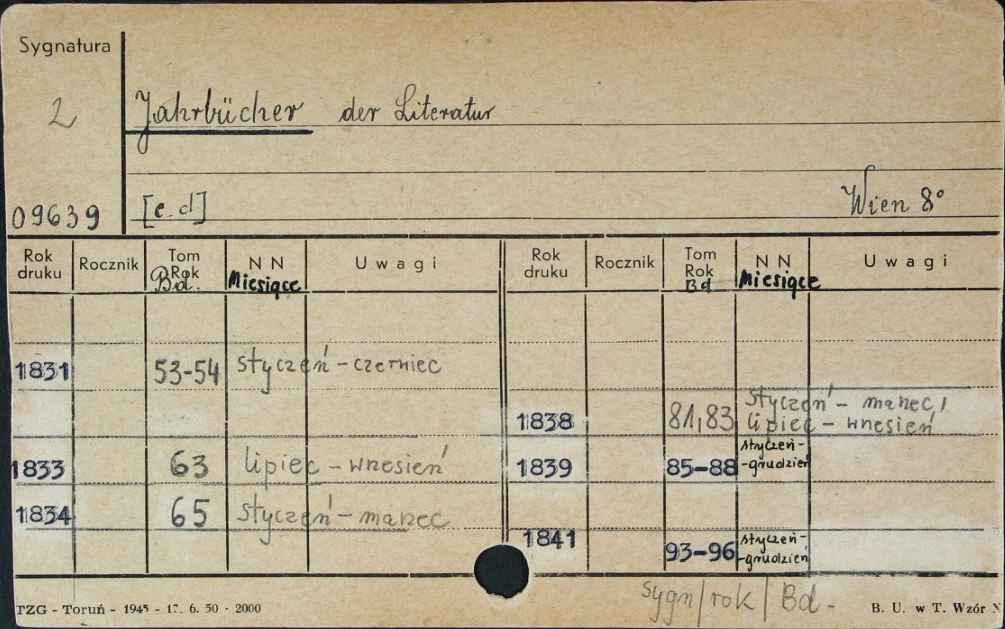 Sygnatura
2
Jahrbücher der Literatur
09639
[c.d]
Wien 8°
Rok druku Rocznik Tom Rok Bd. N N Miesiące Uwagi Rok druku Rocznik Tom Rok Bd N N Miesiące Uwagi
1831 53-54 styczeń - czerwiec
1833 63 lipiec - wrzesień
1834 65 styczeń - marzec
1838 81,83 styczeń - marzec,
lipiec - wrzesień
1839 85-88 styczeń-
-grudzień
1841 93-96 styczeń-
-grudzień
sygn/rok/Bd.
TZG - Toruń - 1945 - 17. 6. 50 - 2000
B. U. w T. Wzór